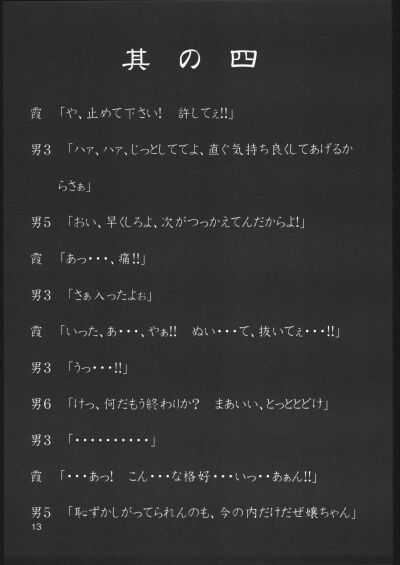 其の四
霞 「や、止めて下さい! 許してぇ!!」
男3 「ハァ、ハァ、じっとしててよ、直ぐ気持ち良くしてあげるか
らさぁ」
男5 「おい、早くしろよ、次がつっかえてんだからよ!」
霞 「あっ・・・、痛!!」
男3 「さぁ入ったよぉ」
霞 「いった、あ・・・、やぁ!! ぬい・・・て、抜いてぇ・・・!!」
男3 「うっ・・・!!」
男6 「けっ、何だもう終わりか? まあいい、とっととどけ」
男3 「・・・・・・・・・・」
霞 「・・・あっ! こん・・・な格好・・・いっ・・あぁん!!」
男5 「恥ずかしがってられんのも、今の内だけだぜ嬢ちゃん」
13